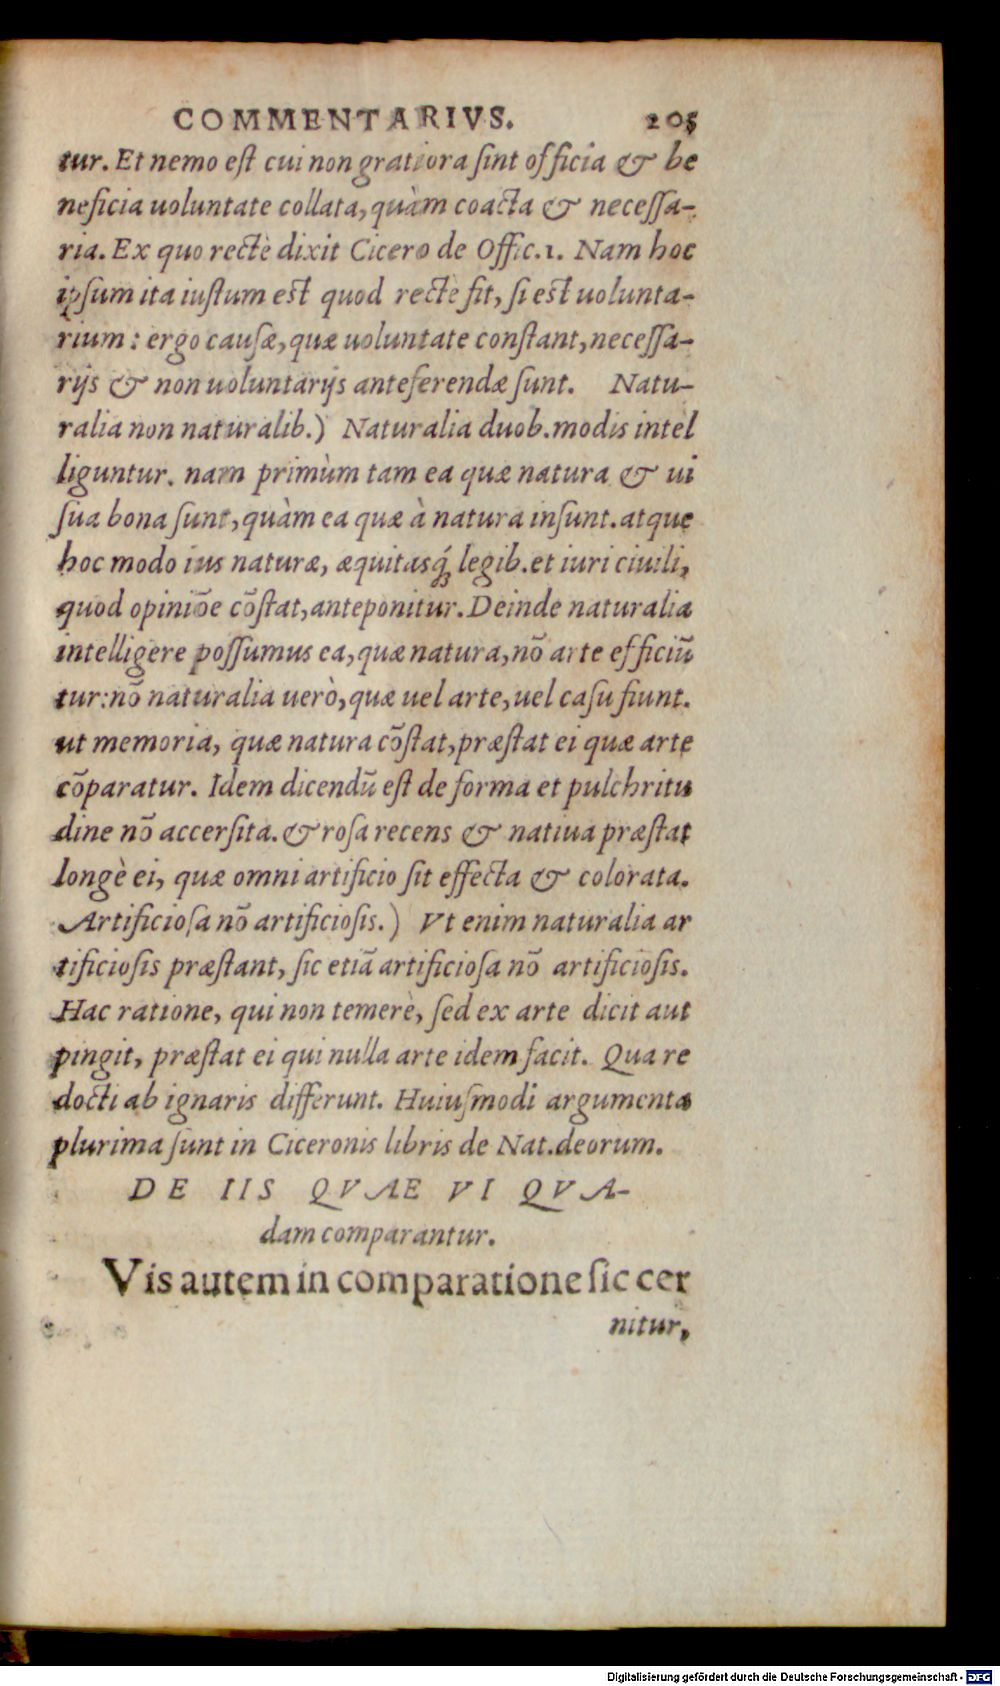 COMMENTARIVS. 205
tur. Et nemo eſt cui non gratiora ſint officia & be
neficia uoluntate collata, quàm coacta & neceſſa-
ria. Ex quo rectè dixit Cicero de Offic.1. Nam hoc
ipſum ita iuſtum eſt quod rectè fit, ſi eſt uolunta-
rium: ergo cauſæ, quæ uoluntate conſtant, neceſſa-
rijs & non uoluntarijs anteferendæ ſunt. Natu-
ralia non naturalib.) Naturalia duob. modis intel
liguntur. nam primùm tam ea quæ natura & ui
ſua bona ſunt, quàm ea quæ à natura inſunt. atque
hoc modo ius naturæ, æquitasq́; legib. et iuri ciuili,
quod opiniõe cõſtat, anteponitur. Deinde naturalia
intelligere poſſumus ea, quæ natura, nõ arte efficiũ
tur: nõ naturalia uerò, quæ uel arte, uel caſu fiunt.
ut memoria, quæ natura cõſtat, præſtat ei quæ arte
cõparatur. Idem dicendũ eſt de forma et pulchritu
dine nõ accerſita. & roſa recens & natiua præſtat
longè ei, quæ omni artificio ſit effecta & colorata.
Artificioſa nõ artificioſis.) Vt enim naturalia ar
tificioſis præſtant, ſic etiã artificioſa nõ artificioſis.
Hac ratione, qui non temerè, ſed ex arte dicit aut
pingit, præſtat ei qui nulla arte idem facit. Qua re
docti ab ignaris differunt. Huiuſmodi argumenta
plurima ſunt in Ciceronis libris de Nat. deorum.
DE IIS QVAE VI QVA-
dam comparantur.
Vis autem in comparatione ſic cer
nitur,
Digitalisierung gefördert durch die Deutsche Forschungsgemeinschaft - DFG